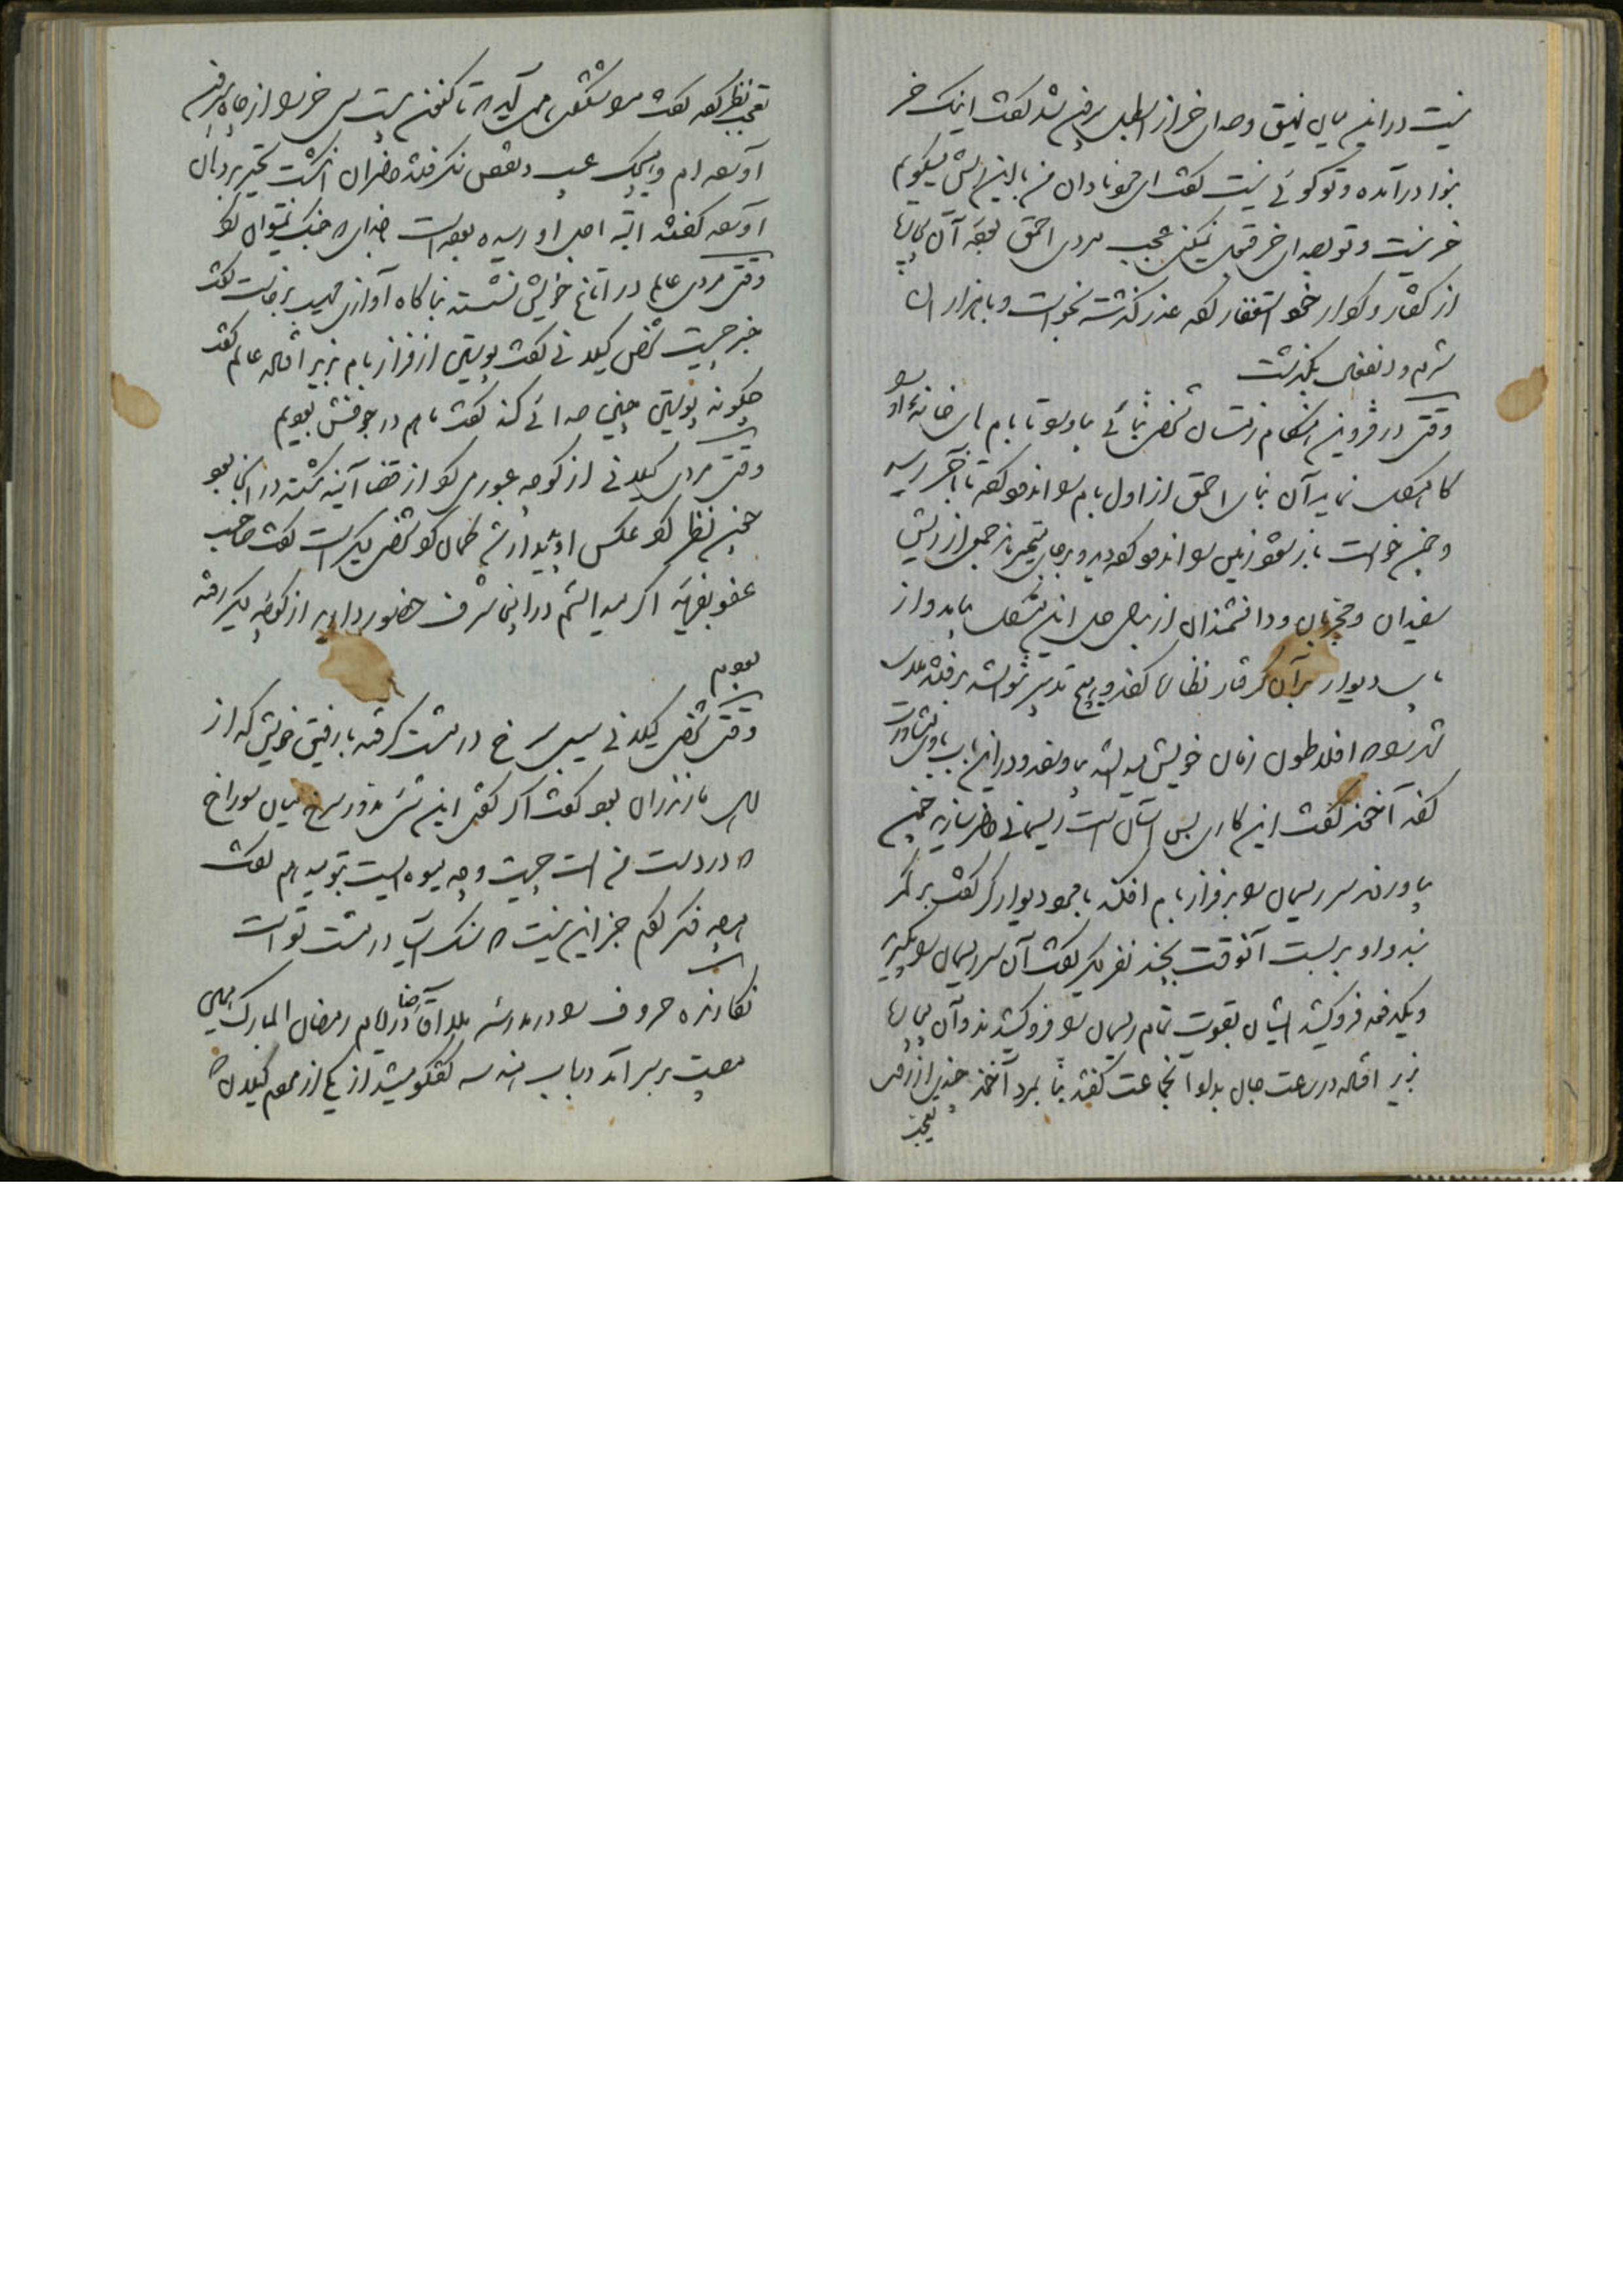 نیست در این میان نهیق و صدای خر از اصطبل بیرون شد گفت اینک خر
بنوا درآمده و تو گوئی نیست گفت ای عمو نادان من با این ریش میگویم
خر نیست و تو بصدای خر قبول نمیکنی عجب مردی احمق بوده آن بیچاره
از گفتار و کردار خود استغفار کرده عذر گذشته بخواست و با هزاران
شرم و انفعال بگذشت
وقتی در قزوین هنگام زمستان شخص بنائی بیاورد تا بام های خانه او را
کاه‌گل نماید آن بنای احمق از اول بام را اندود کرده تا بآخر رسید
و چون خواست باز بشود زمین را اندود کرده دید و بجای متحیر بماند جمعی از ریش
سفیدان و مجربان و دانشمندان از برای حل این مشکل بیامد و از
پای دیوار بر آن گرفتار نظاره کرده و هیچ تدبیر نتوانستند رفتند ملای
شهر را که افلاطون زمان خویش میدانستند بیاوردند و در این باب با وی مشاورت
کرده آخوند گفت این کاری بس آسان است ریسمانی حاضر سازید چون
بیاوردند سر ریسمان را بر فراز بام افکند با مرد دیوارگر گفت بر کمر
بند و او بر بست آنوقت بچند نفر دیگر گفت آن سر ریسمان را بگیرید
و یکدفعه فرو کشید ایشان بقوت تمام ریسمان را فرو کشیدند و آن بیچاره
بزیر افتاد در ساعت جان بداد آنجماعت گفتند بنا بمرد آخوند چنین از روی
تعجب
تعجب نظر کرده گفت مرا شگفتی همی آید که تا کنون بیست سی خر را از چاه بیرون
آورده‌ام و هیچیک عیب و نقص نکرده‌اند حاضران انگشت تحیر بر دهان
آورده گفتند البته اجل او رسیده بوده است با خدای که جنگ نمیتوان کرد
وقتی مردی عالم در اتاغ خویش نشسته بناگاه آوازی مهیب برخاست گفت
خبر چیست شخص گیلانی گفت پوستین از فراز بام بزیر افتاد عالم گفت
چگونه پوستین چنین صدائی کند گفت من هم در جوفش بودم
وقتی مردی گیلانی از کوچه عبور می‌کرد از قضا آئینه شکسته در آنجا بود
چون نظر کرد عکس او پدیدار شد گمان کرد شخص دیگر است گفت صاحب
عفو بفرمائید اگر میدانستم در اینجا شرف حضور دارید از کوچه دیگر رفته
بودم
وقتی شخص گیلانی سیبی سرخ در مشت گرفته با رفیق خویش که از
اهل مازندران بود گفت اگر گفتی این شیء مدور سرخ میان سوراخ
که در دست من است چیست و چه میوه ایست بتو میدهم گفت
همه فکر کردم جز این نیست که سنگ آسیا در مشت تو است
نگارنده حروف را در مدرسه ملا آقا رضا در ایام رمضان المبارک مجلس
صحبت بر سر آمد و از باب هندسه گفتگو میشد از یکی از مردم گیلان که